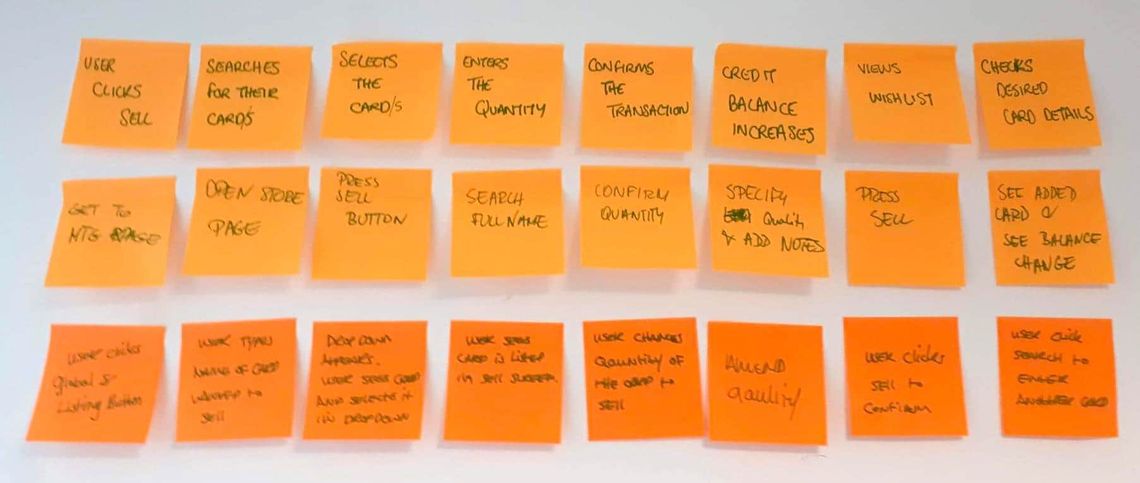 USER
CLICKS
SELL
SEARCHES
FOR THEIR
CARD/S
SELECTS
THE
CARD/S
ENTERS
THE
QUANTITY
CONFIRMS
THE
TRANSACTION
CREDIT
BALANCE
INCREASES
VIEWS
WISHLIST
CHECKS
DESIRED
CARD DETAILS
GET TO
MTG PAGE
OPEN STORE
PAGE
PRESS
SELL
BUTTON
SEARCH
FULL NAME
CONFIRM
QUANTITY
SPECIFY
Quality
& ADD NOTES
PRESS
SELL
SEE ADDED
CARD &
SEE BALANCE
CHANGE
USER clicks
global
Listing Button
USER TYPES
NAME OF CARD
WANTED TO
SELL
DROP DOWN
APPEARS.
USER SEES CARD
AND SELECTS IT
IN DROPDOWN
USER SEES
CARD IS LISTED
IN SELL SCREEN.
USER CHANGES
QAUNTITY OF
THE CARD TO
SELL
AMEND
qaulity
USER clicks
SELL TO
CONFIRM
USER click
SEARCH TO
ENTER
ANOTHER CARD